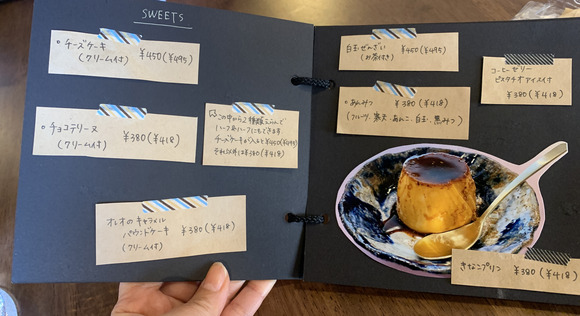 SWEETS
○チーズケーキ ¥450(¥495)
(クリーム付)
○チョコテリーヌ ¥380(¥418)
(クリーム付)
この中から2種類えらんで
ハーフ&ハーフにもできます
チーズケーキが入ると¥450(¥495)
それ以外は¥380(¥418)
オレオのキャラメル
パウンドケーキ ¥380(¥418)
(クリーム付)
白玉ぜんざい ¥450(¥495)
(お茶付き)
○あんみつ ¥380(¥418)
(フルーツ、寒天、あんこ、白玉、黒みつ)
コーヒーゼリー
ピスタチオアイス付
¥380(¥418)
きなこプリン ¥380(¥418)